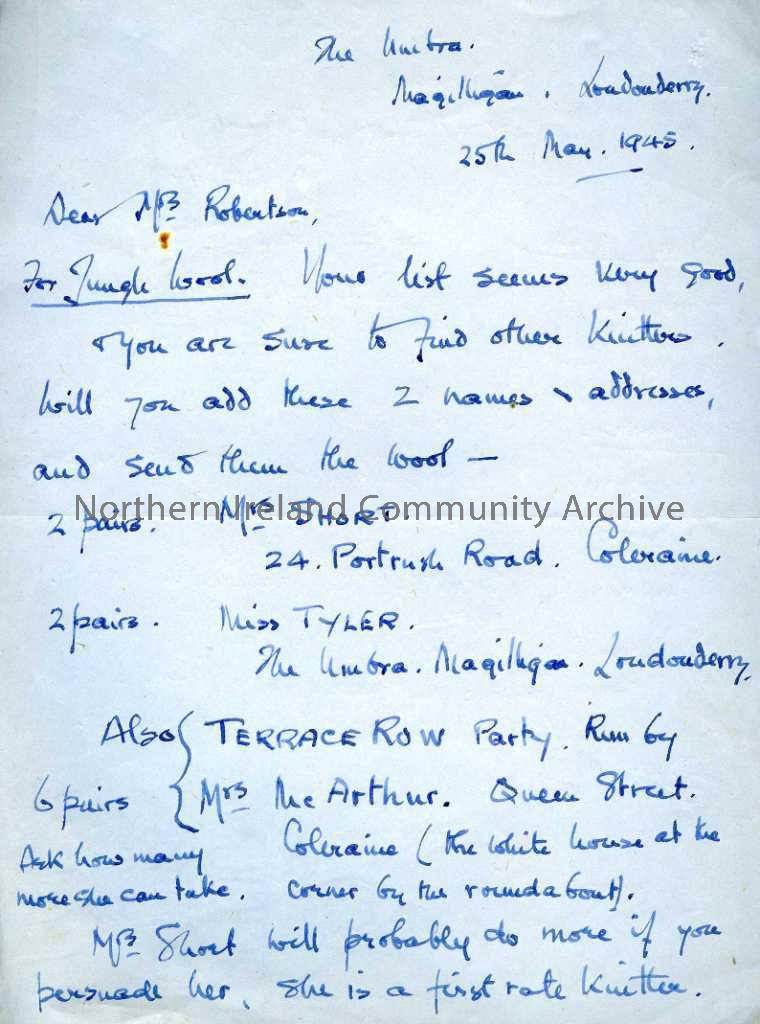 The Umbra.
Magilligan. Londonderry.
25th May. 1945.
Dear Mrs Robertson,
For Jungle Wool. Your list seems very good,
& you are sure to find other Knitters.
Will you add these 2 names & addresses,
and send them the wool —
Northern Ireland Community Archive
2 pairs. Mrs SHORT
24. Portrush Road. Coleraine.
2 pairs. Miss TYLER.
The Umbra. Magilligan. Londonderry.
Also { TERRACE ROW Party. Run by
6 pairs { Mrs McArthur. Queen Street.
Ask how many Coleraine (the white house at the
more she can take. corner by the roundabout).
Mrs Short will probably do more if you
persuade her, she is a first rate Knitter.